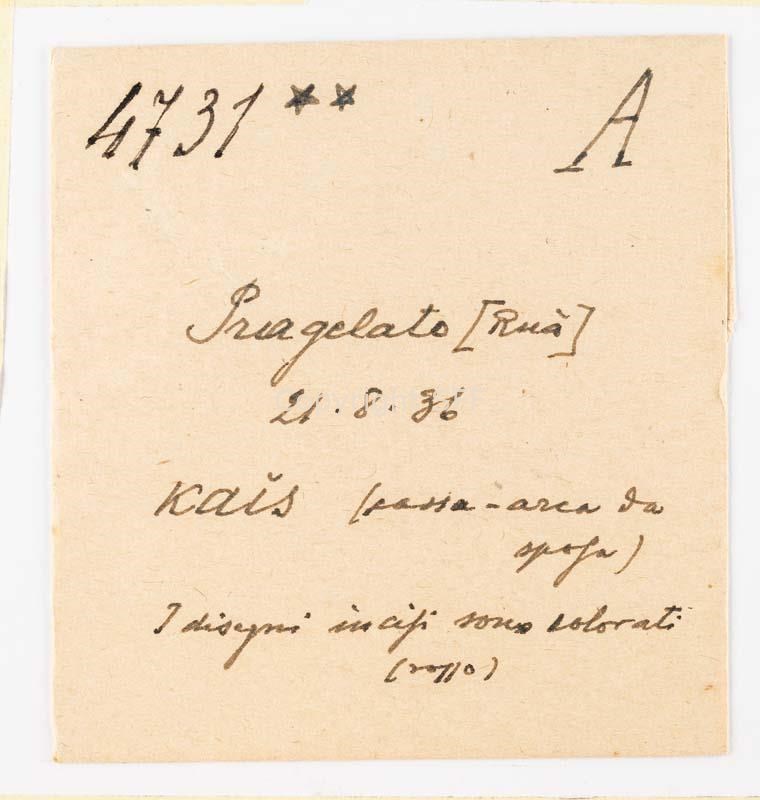 4731 ** A
Pragelato [Ruà]
21.8.36
Kaĭs (cassa-arca da
sposa)
I disegni incisi sono colorati
(rosso)